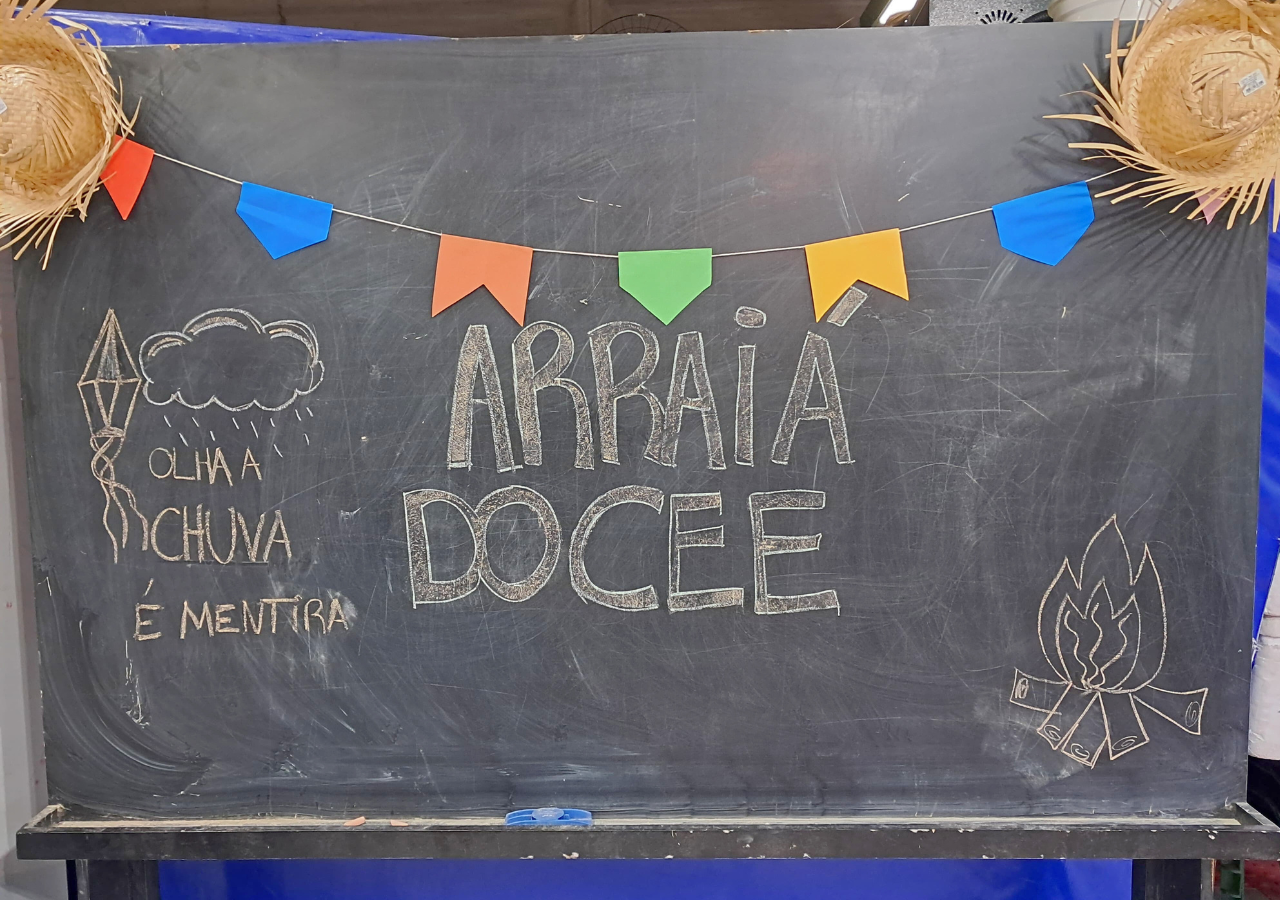 ARRAIÁ
DOCEE
OLHA A
CHUVA
É MENTIRA